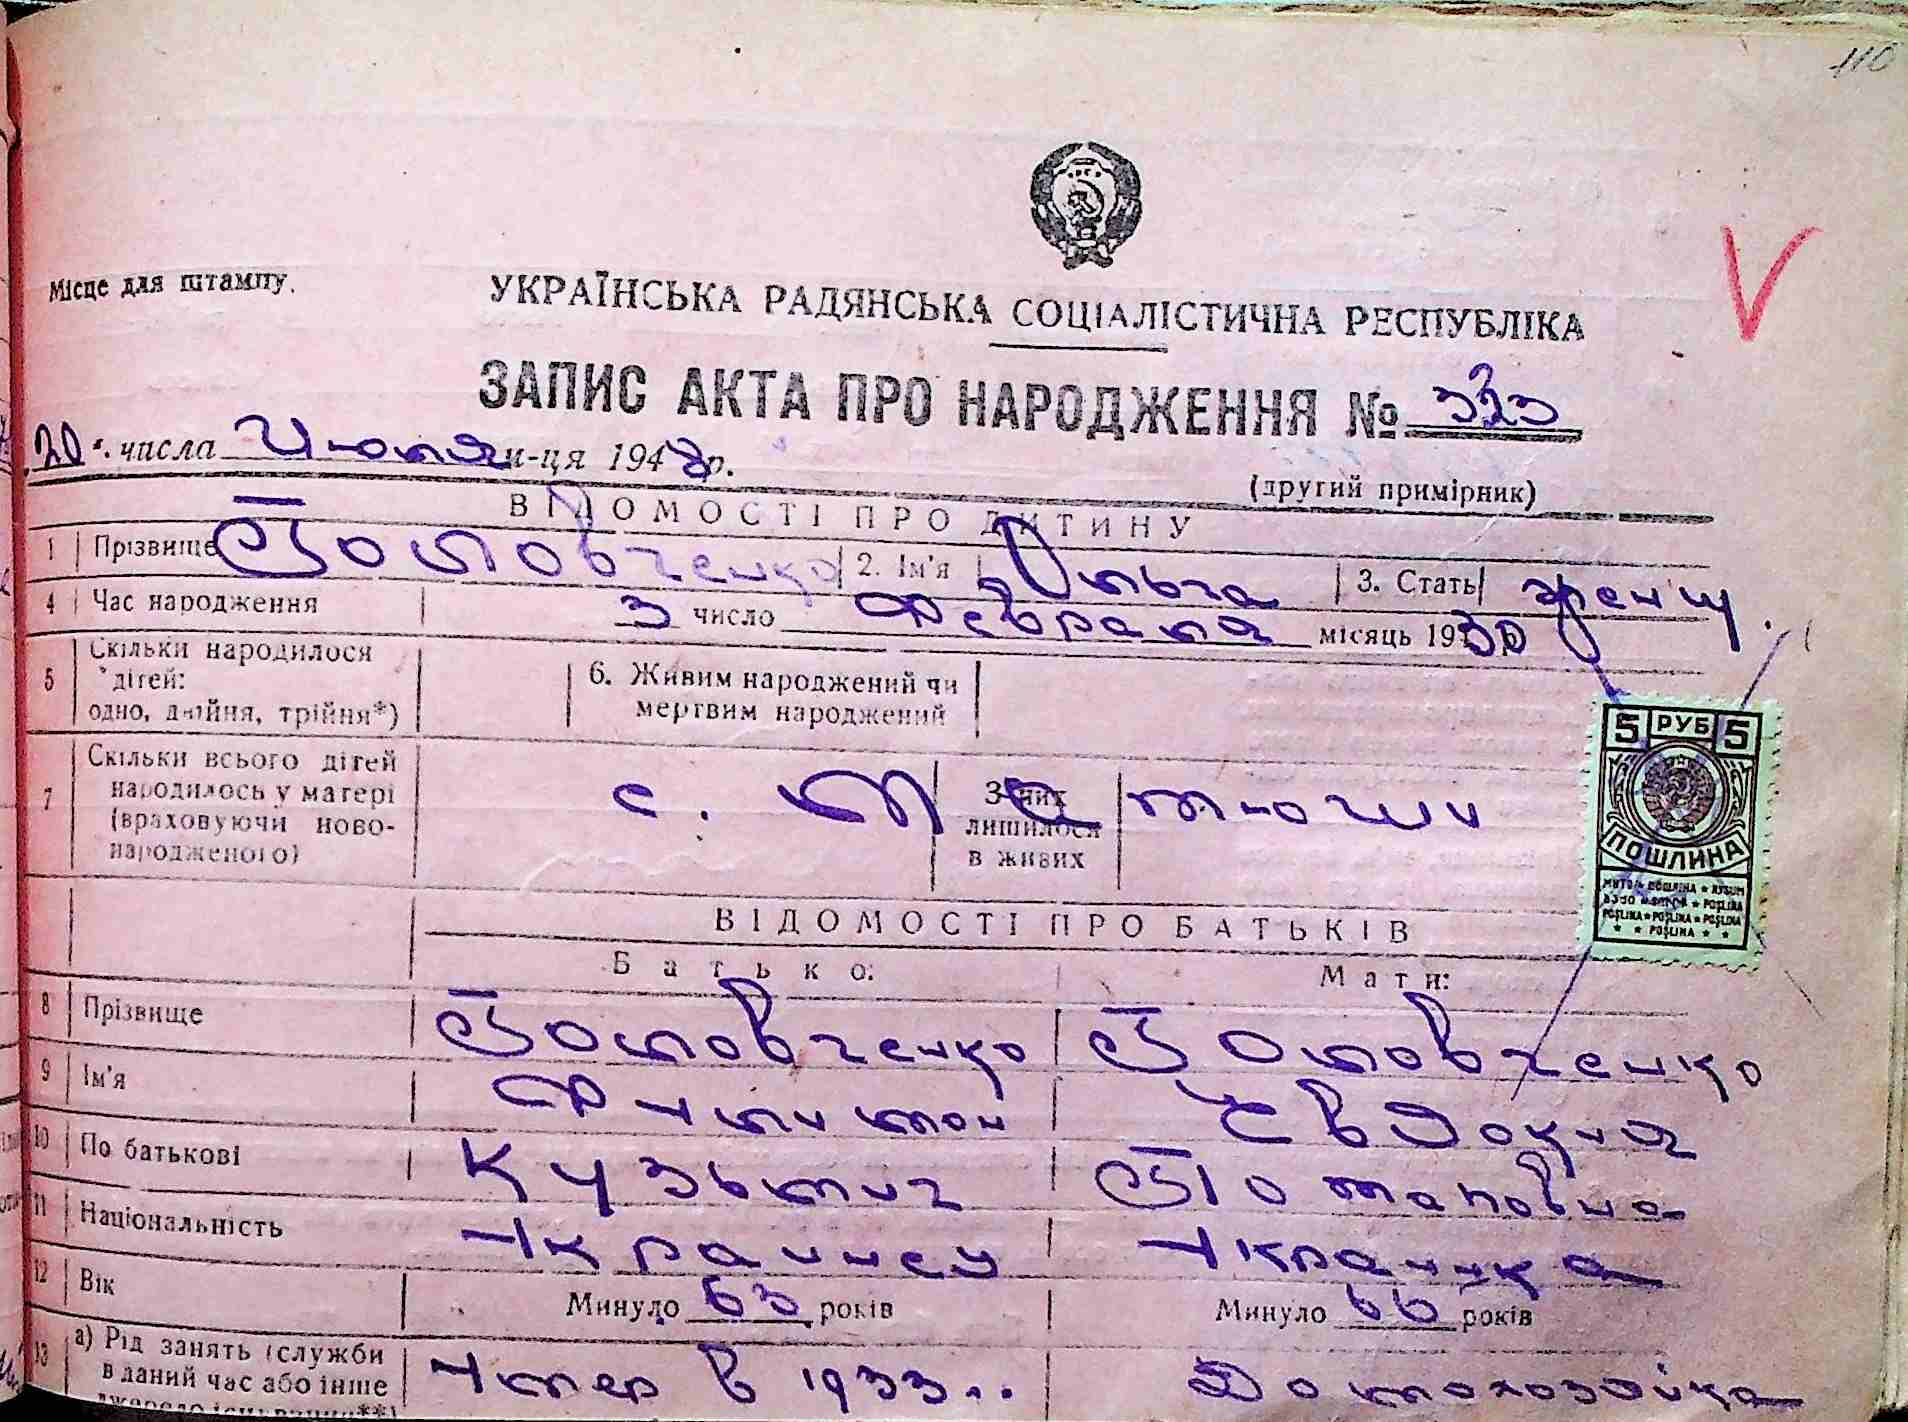 110
Місце для штампу.
УКРАЇНСЬКА РАДЯНСЬКА СОЦІАЛІСТИЧНА РЕСПУБЛІКА
ЗАПИС АКТА ПРО НАРОДЖЕННЯ № 323
20 ". числа Июля м-ця 1948 р.
(другий примірник)
ВІДОМОСТІ ПРО ДИТИНУ
1 Прізвище Головченко 2. Ім'я Ольга 3. Стать женщ.
4 Час народження 3 число Февраля місяць 1930
5 Скільки народилося дітей: одно, двійня, трійня*) 6. Живим народжений чи мертвим народжений
7 Скільки всього дітей народилось у матері (враховуючи новонародженого) с. З них лишилося в живих
ВІДОМОСТІ ПРО БАТЬКІВ
Батько: Мати:
8 Прізвище Головченко Головченко
9 Ім'я Филимон Евдокия
10 По батькові Кузьмич Потаповна
11 Національність Украинец Украинка
12 Вік Минуло 63 років Минуло 66 років
13 а) Рід занять (служби в даний час або інше джерело існування**) Умер в 1933 г. Домохозяйка
5 РУБ 5
ПОШЛИНА
POŞLINA
POŞLINA ★ POŞLINA ★ POŞLINA
★ ★ POŞLINA ★ ★